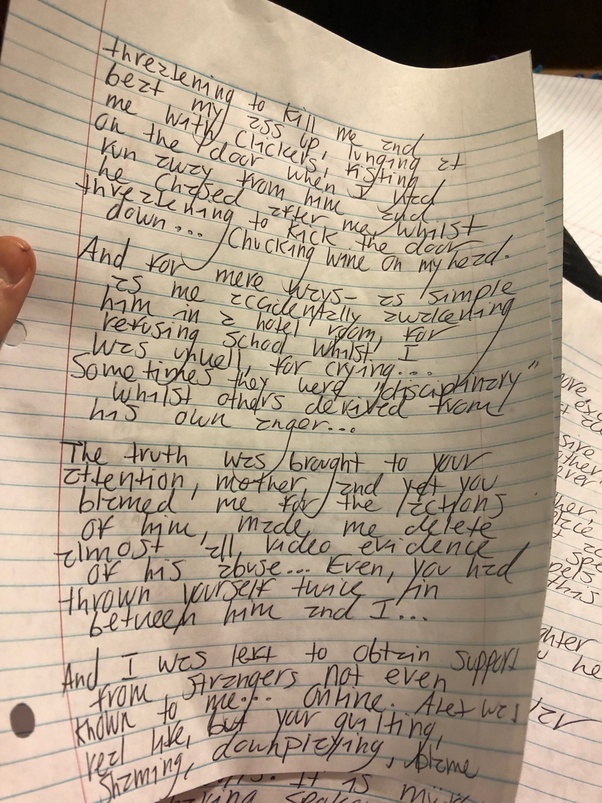 threatening to kill me and
beat my ass up, lunging at
me with clickers, fisting
on the door when I had
run away from him and
he chased after me, whilst
threatening to kick the door
down... Chucking wine on my head.
And for mere ways- as simple
as me accidentally awakening
him in a hotel room, for
refusing school whilst I
was unwell, for crying...
Sometimes they were "disciplinary"
whilst others derived from
his own anger...
The truth was brought to your
attention, mother, and yet you
blamed me for the actions
of him, made me delete
almost all video evidence
of his abuse... Even, you had
thrown yourself twice in
between him and I...
And I was left to obtain support
from strangers not even
known to me... online. was
real life, but your guilting,
shaming, downplaying, blame